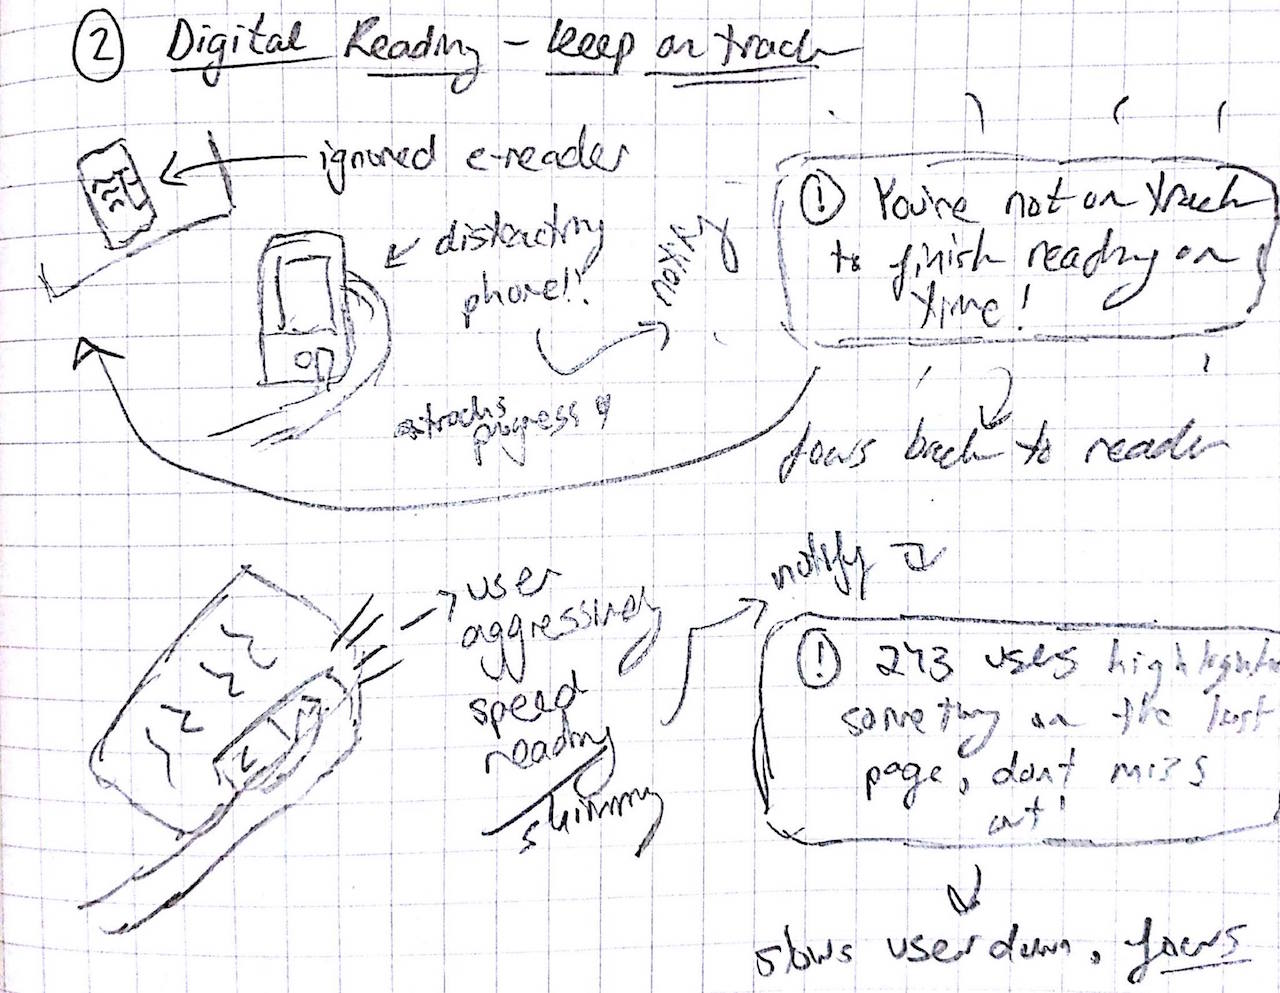 ② Digital Reading - keep on track
ignored e-reader
distracting
phone!!
notify
! You're not on track
to finish reading on
time!
tracks
progress
focus back to reader
user
aggressively
speed
reading
skimming
notify
! 243 users highlighted
something on the last
page, dont miss
out!
slows user down, focus